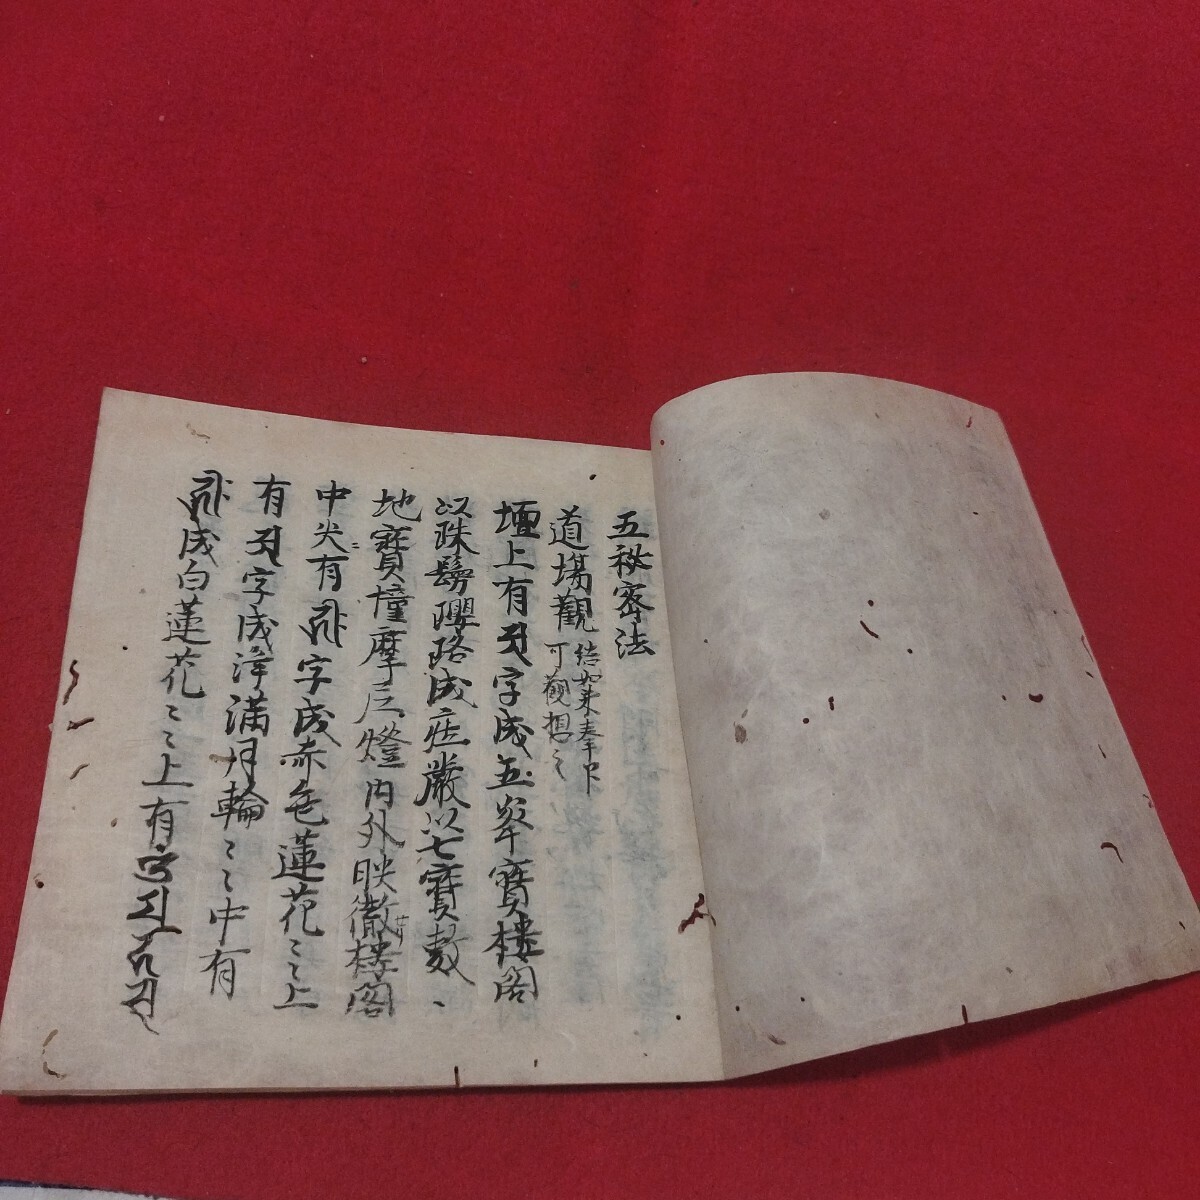 五秘密法
道場觀 結如来拳印
可觀想之
壇上有 字成五峯寶樓閣
以珠鬘瓔珞成庄嚴以七寶數、
地寶幢摩尼燈内外映徹樓閣
中央有 字成赤色蓮花〻〻上
有 字成淨満月輪〻〻中有
成白蓮花〻〻上有